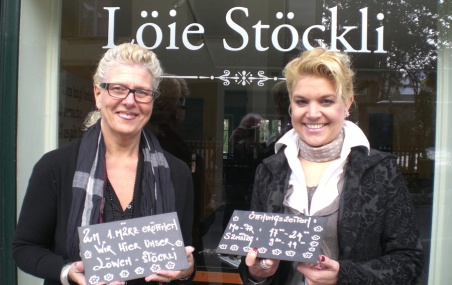 Löie Stöckli
Zum 1. März eröffnen
wir hier unser
Löwen-Stöckli
Öffnungszeiten
Mo-Fr: 17°°-24°°
Samstag: 9°°-19°°